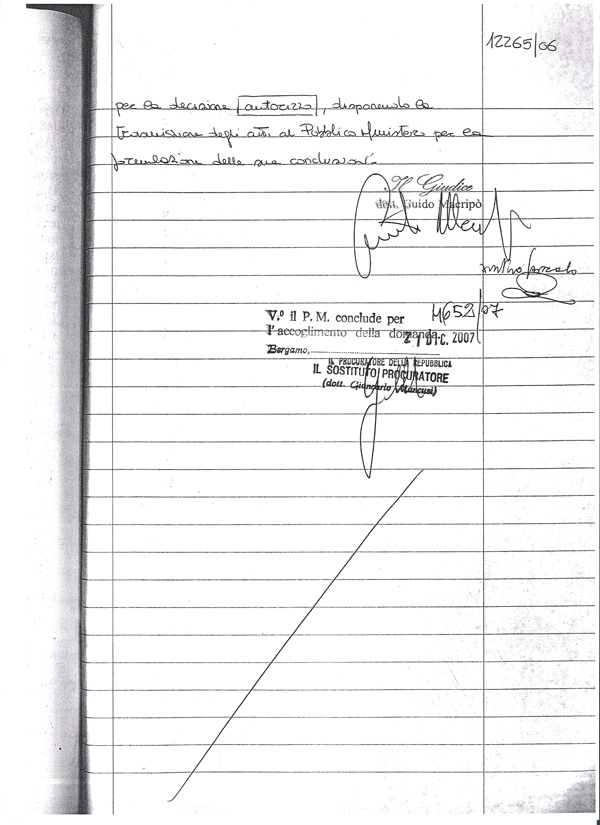 12265/06
per la decisione autorizza, disponendo la
trasmissione degli atti al Pubblico Ministero per la
formulazione delle sue conclusioni.
Il Giudice
dott. Guido Macripò
V.º il P. M. conclude per
l'accoglimento della domanda
M652/07
21 DIC. 2007
Bergamo,
IL PROCURATORE DELLA REPUBBLICA
IL SOSTITUTO PROCURATORE
(dott. Giancarlo Mancusi)